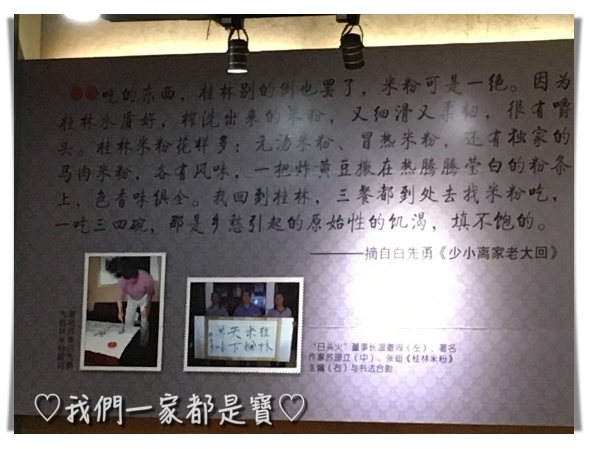 吃的东西，桂林别的倒也罢了，米粉可是一绝。因为
桂林水质好，榨洗出来的米粉，又细滑又柔韧，很有嚼
头。桂林米粉花样多：元汤米粉、冒热米粉，还有独家的
马肉米粉，各有风味，一把炸黄豆撒在热腾腾莹白的粉条
上，色香味俱全。我回到桂林，三餐都到处去找米粉吃，
一吃三四碗，那是乡愁引起的原始性的饥渴，填不饱的。
——摘自白先勇《少小离家老大回》
为桂林米粉题词
"日头火"董事长温蓄周（左）、著名
作家苏理立（中）、张迪《桂林米粉》
主编（右）与书法合影
♡我們一家都是寶♡